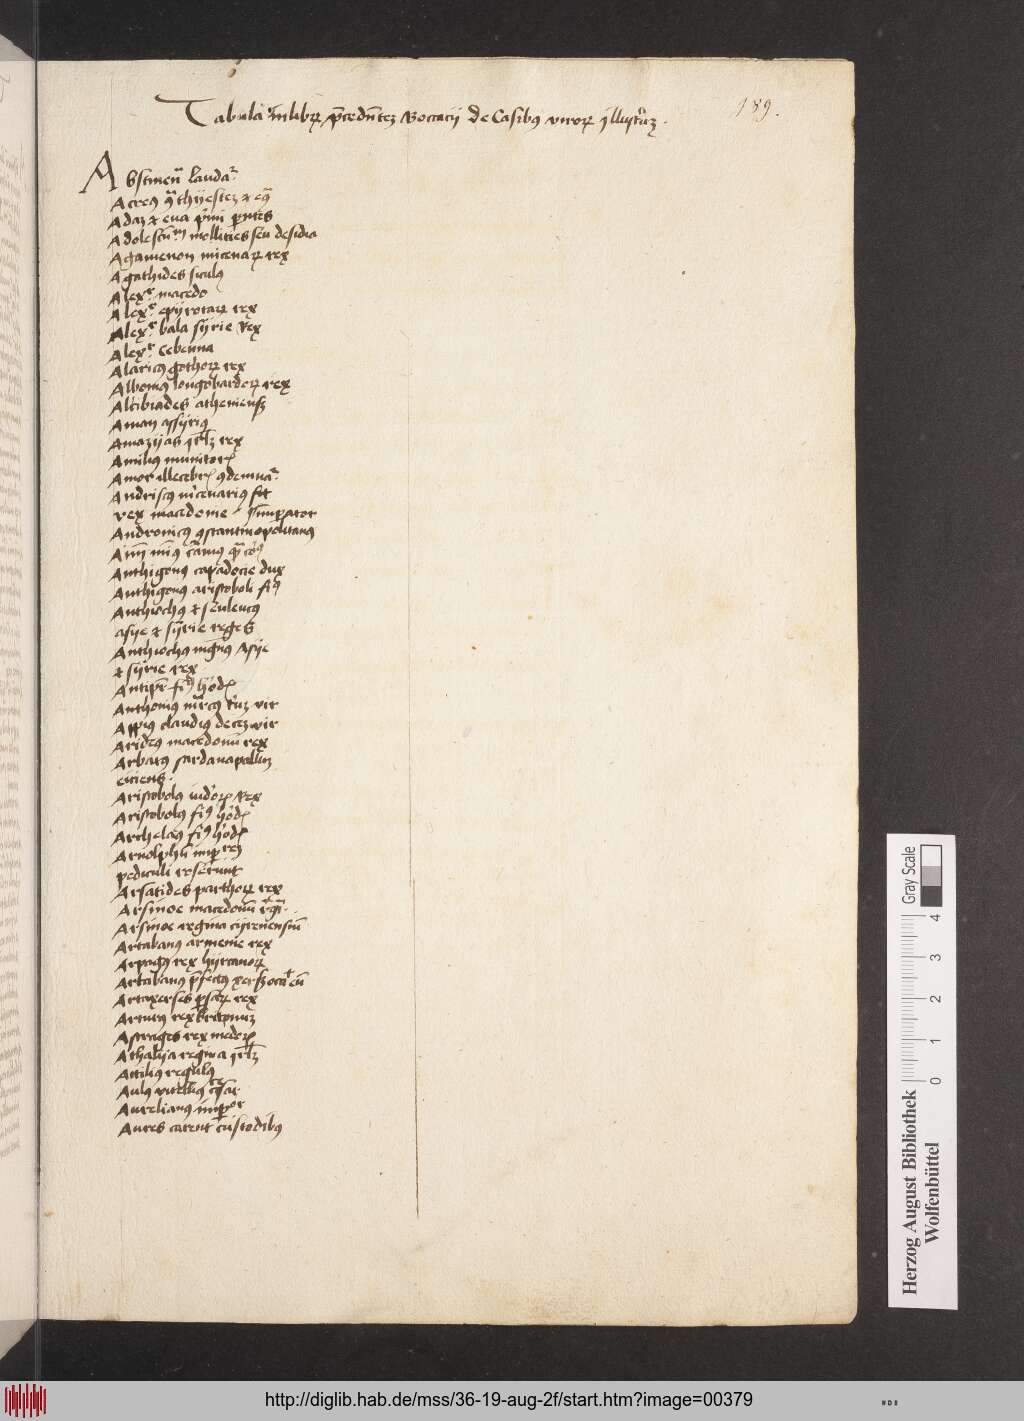 Tabula in librum precedentem Boccacij de Casibus virorum illustrium.
189.
Abstinentia laudatur
Acreus Thyestez et
Adaz et eua primi parentes
Adolescentum mollities seu desidia
Agamenon micenarum rex
Agathides siculus
Alexr macedo
Alexr epyrotarum rex
Alexr bala syrie Rex
Alexr Cebenna
Alaricus gothorum rex
Alboinus longobardorum rex
Alcibiades atheniensis
Aman assyrius
Amazyas irlz rex
Amilius
Amor illecebris
Andriscus mercenarius fit
rex macedonie imperator
Andronicus constantinopolitanus
Anthigonus capadocie dux
Anthigonus aristoboli fi9
Anthiochus et seuleucus
asye et syrie reges
Anthiochus magnus Asye
et syrie rex
Antiper fi9 herodis
Anthonius marcus vir
Appius claudius decezvir
Arideus macedonum rex
Arbatus sardanapallum
eiciens.
Aristobolus iudeorum Rex
Aristobolus fi9 herodis
Archelaus fi9 herodis
Arnolphum
pediculi
Arsatides parthorum rex
Arsinoe macedonum regina
Arsinoe regina cyrenensium
Artabanus armenie rex
Arpagus rex hyrcanorum
Artabanus prefectus xersz occidit eum
Artaxerses persarum rex
Arturus rex britonuz
Astrages rex medorum
Athalya regina irlz
Attilius regulus
Aulus vitellius cesar
Aurelianus imperator
Aures carent custodibus
Gray Scale
0 1 2 3 4
Herzog August Bibliothek
Wolfenbüttel
http://diglib.hab.de/mss/36-19-aug-2f/start.htm?image=00379